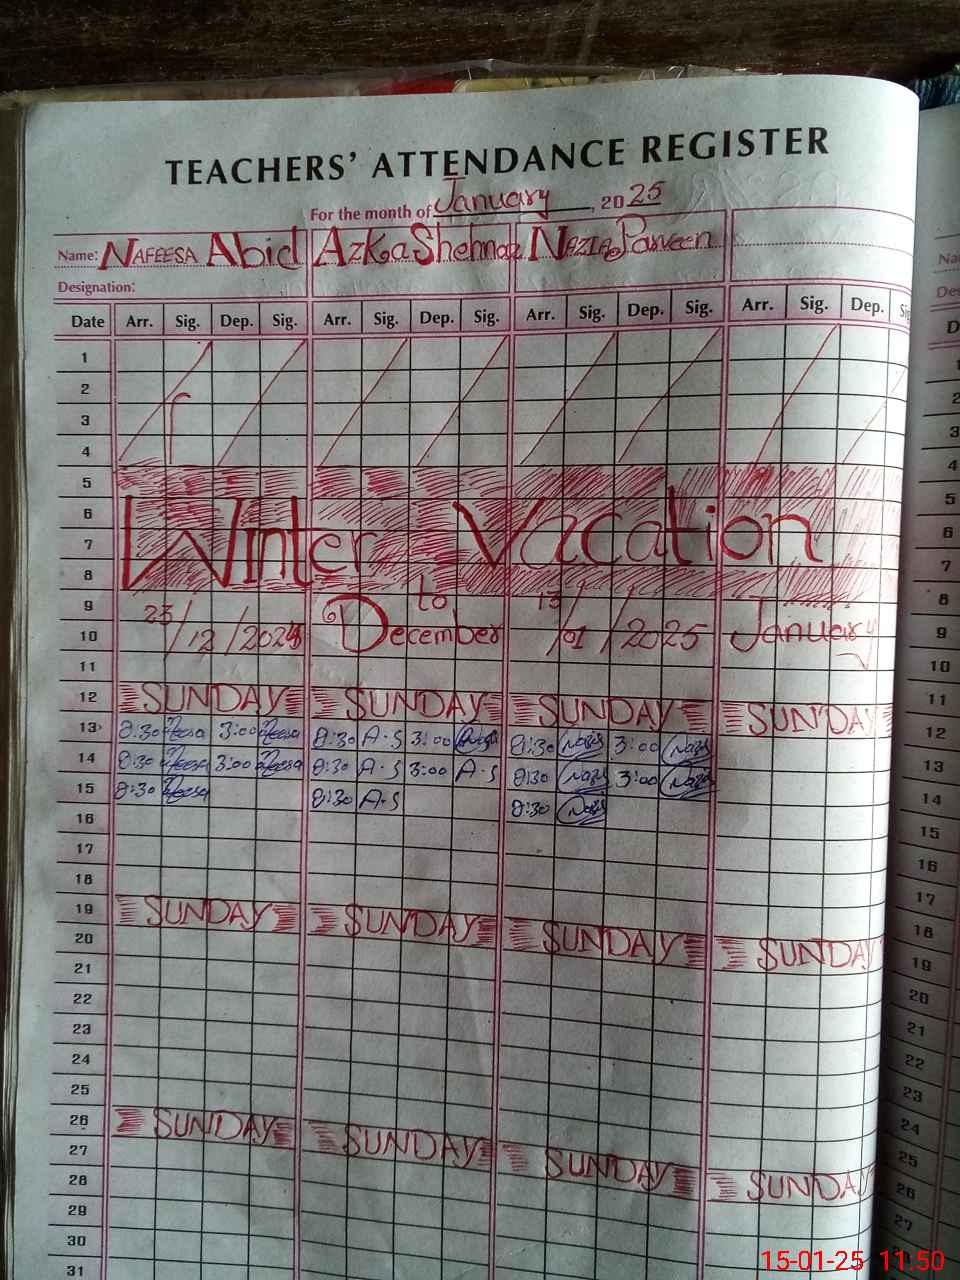 TEACHERS' ATTENDANCE REGISTER
For the month of January, 2025
Name: NAFEESA Abid AzKa Shehnaz NAZIA Parveen
Designation:
Date Arr. Sig. Dep. Sig. Arr. Sig. Dep. Sig. Arr. Sig. Dep. Sig. Arr. Sig. Dep.
1
2
3
4
5
6
7
8
Winter Vacation
9
10
23/12/2024 December to 13/01/2025 January
11
12 SUNDAY SUNDAY SUNDAY SUNDAY
13 8:30 3:00 8:30 A.S 3:00 8:30 Nazis 3:00 Nazis
14 8:30 3:00 8:30 A.S 3:00 A.S 8:30 Nazis 3:00 Nazis
15 8:30 8:30 A.S 8:30 Nazis
16
17
18
19 SUNDAY SUNDAY SUNDAY SUNDAY
20
21
22
23
24
25
26 SUNDAY SUNDAY SUNDAY SUNDAY
27
28
29
30
31
4
5
6
7
8
9
10
11
12
13
14
15
16
17
18
19
20
21
22
23
24
25
26
27
15-01-25 11:50